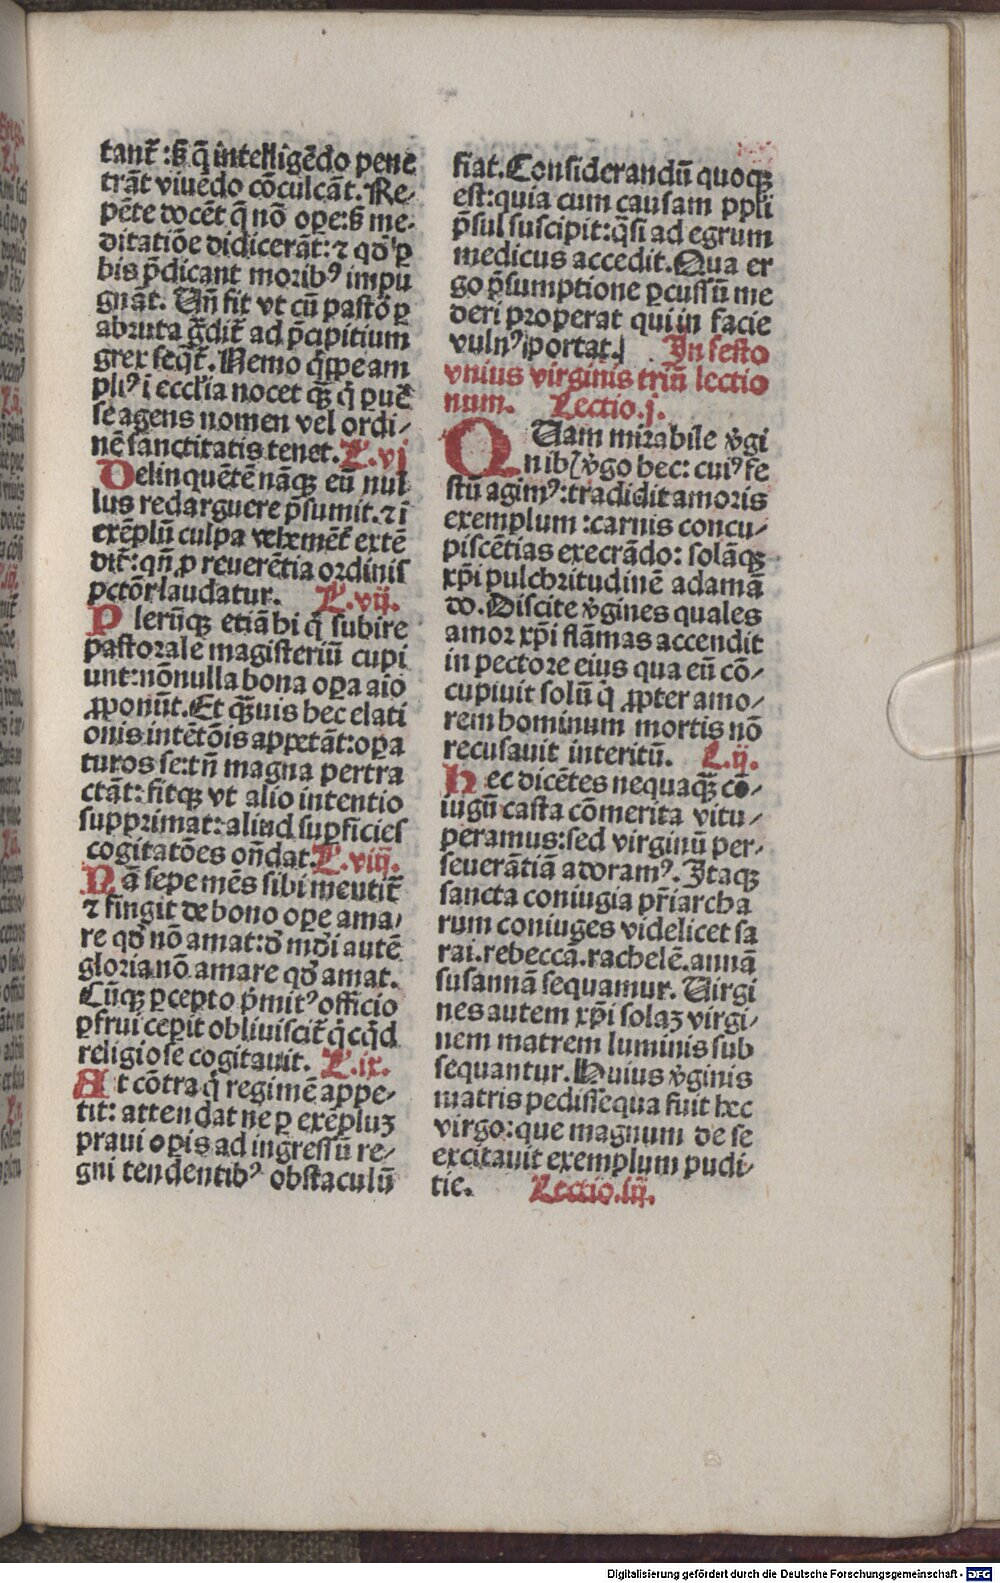 tant᷑ :ß q̄ intelligēdo pene
trāt viuēdo cōculcāt. Re⸗
pēte docēt q̄ nō oꝑe:ß me⸗
ditatiōe didicerāt: ⁊ qđ ꝟ
bis p̄dicant morib⁹ impu
gnāt. Un̄ fit vt cū pastor ꝑ
abrupta ḡdit᷑ ad p̄cipitium
grex seqt᷑. Nemo q̄ppe am
pli⁹ ī ecclīa nocet qꝫ̄ q̄ ꝑuē
se agens nomen vel ordi⸗
nē sanctitatis tenet. L.vj
Delinquētē nāqꝫ eū nul
lus redarguere p̄sumit. ⁊ ī
exēplū culpa vehemēt᷑ extē
dit᷑: qn̄ ꝓ reuerētia ordinis
pctōr laudatur. L.vij.
Plerūqꝫ etiā hi q̄ subire
pastorale magisteriū cupi
unt:nōnulla bona oꝑa aīo
ꝓponūt. Et qꝫ̄uis hec elati
onis intētōis appetāt:oꝑa
turos se:tn̄ magna pertra
ctāt: fitqꝫ vt alio intentio
supprimat: aliud suꝑficies
cogitatōes on̄dat. L.viij.
Nā sepe mēs sibi mentit᷑
⁊ fingit de bono oꝑe ama⸗
re qđ nō amat:đ mūdi autē
gloria nō amare qđ amat.
Cūqꝫ ꝑcepto p̄mit⁹ officio
ꝑfrui ceꝑit obliuiscit᷑ q̄cq̄d
religiose cogitauit. L.ix.
At cōtra q̄ regimē appe⸗
tit: attendat ne ꝑ exēpluꝫ
praui oꝑis ad ingressū re⸗
gni tendentib⁹ obstaculū
fiat. Considerandū quoqꝫ
est:quia cum causam ppli
p̄sul suscipit:q̄si ad egrum
medicus accedit. Qua er
go p̄sumptione ꝑcussū me
deri properat qui in facie
vuln⁹ portat. In festo
vnius virginis triū lectio
num. Lectio.j.
QUam mirabile ꝟgi
nib⁹ ꝟgo hec: cui⁹ fe
stū agim⁹:tradidit amoris
exemplum :carnis concu⸗
piscētias execrādo: solāqꝫ
xp̄i pulchritudinē adamā
do. Discite ꝟgines quales
amor xp̄i flāmas accendit
in pectore eius qua eū cō⸗
cupiuit solū q̄ ꝓpter amo⸗
rem hominum mortis nō
recusauit interitū. L.ij.
Hec dicētes nequaqꝫ̄ cō⸗
iugū casta cōmerita vitu⸗
peramus:sed virginū per⸗
seuerātiā adoram⁹. Itaqꝫ
sancta coniugia pr̄iarcha
rum coniuges videlicet sa
rai.rebeccā.rachelē.annā
susannā sequamur. Uirgi
nes autem xp̄i solaꝫ virgi⸗
nem matrem luminis sub
sequantur. Huius ꝟginis
matris pedissēqua fuit hec
virgo:que magnum de se
excitauit exemplum pudi⸗
tie. Lectio.iij.
Digitalisierung gefördert durch die Deutsche Forschungsgemeinschaft - DFG